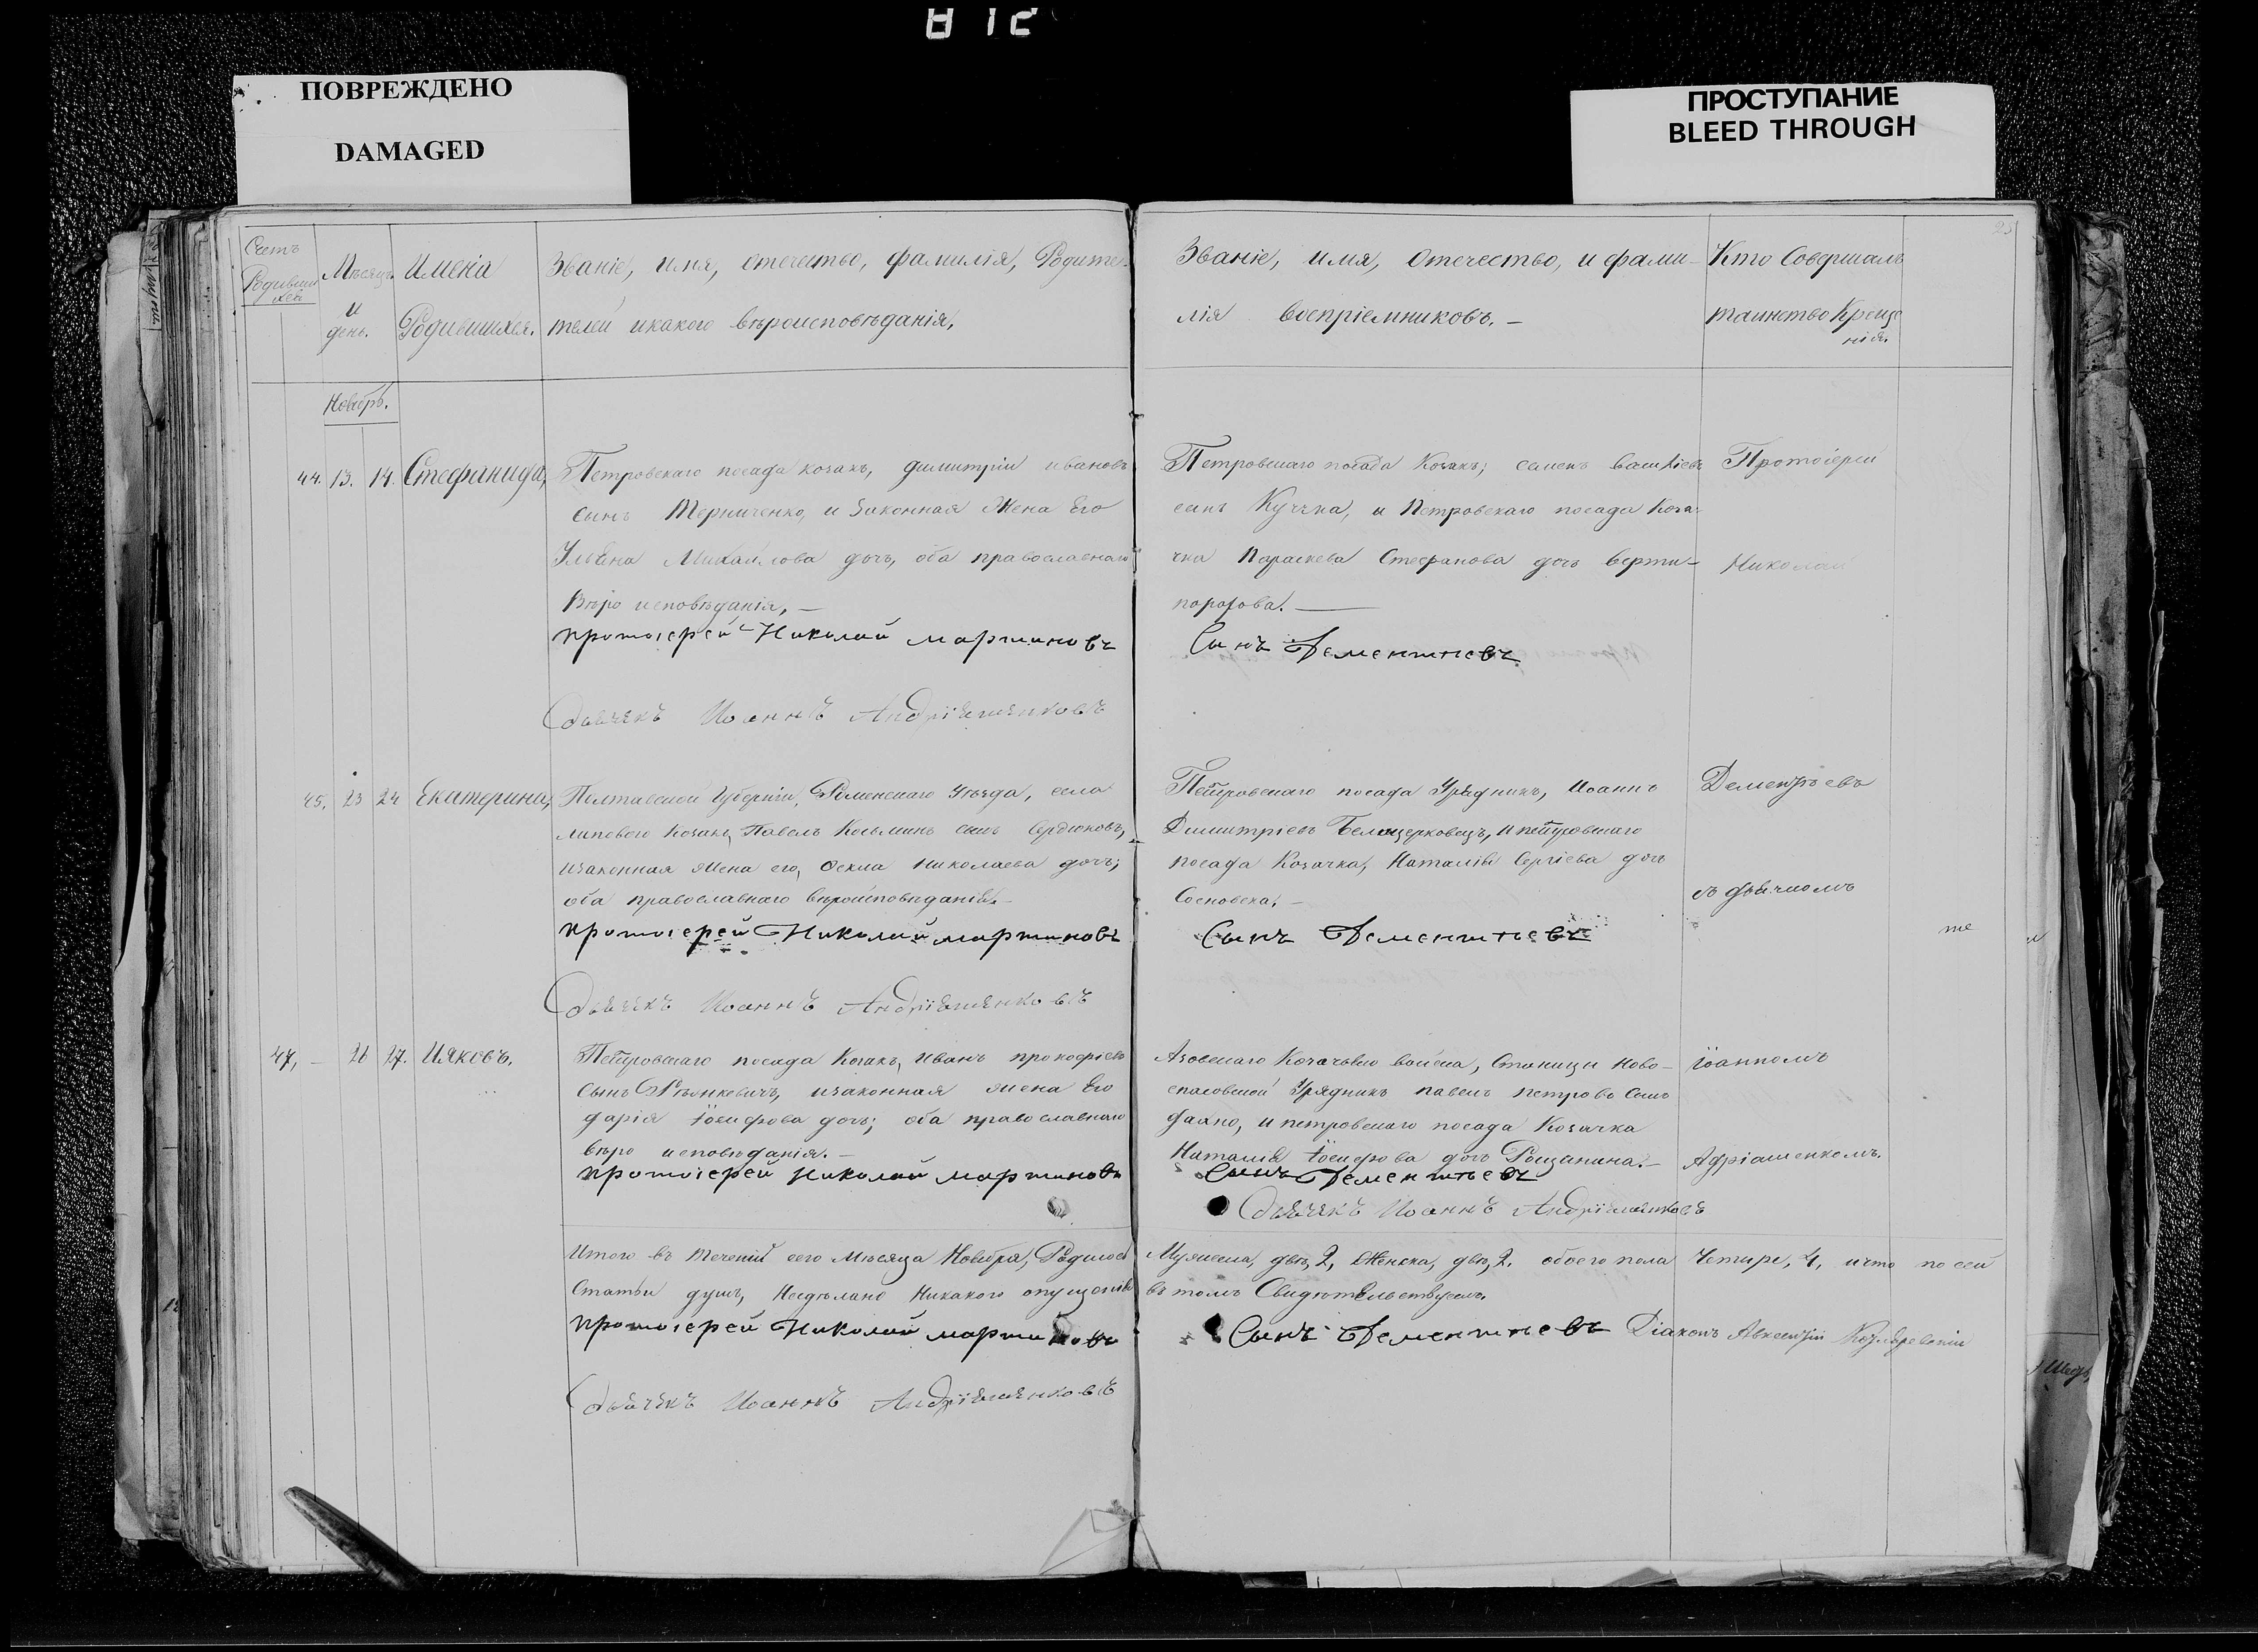 ПОВРЕЖДЕНО
DAMAGED
ПРОСТУПАНИЕ
BLEED THROUGH
23
Счетъ
Родивши
хся
Мѣсяцъ
и
день.
Имена
Родившихся.
Званіе, имя, отечество, фамилія, Родите-
телей икакого вѣроисповѣданія,
Званіе, имя, Отечество, и фами-
лія воспріемниковъ. —
Кто Совершалъ
таинство Креще
нія.
Ноябрь.
44. 13. 14. Стефанида,
Петровскаго посада козакъ, димитріи ивановъ
сынъ Терниченко, и Законная Жена Его
Ульяна Михаилова дочь, оба православнаго
Вѣро исповѣданія, —
протоіерей Николай мартиновъ
Дьячекъ Иоаннъ Андріяшенковъ
Петровскаго посада Козакъ; семенъ
сынъ Кучка, и Петровскаго посада Коза-
чка Параскева Стефанова дочь верти-
порохова. —
Сынъ Дементьевъ
Протоіереи
Николай
45. 23 24 Екатерина,
Полтавской Губерніи, Роменскаго Уѣзда, села
липового Козакъ, Павелъ Косьминъ сынъ Сердюковъ,
изаконная Жена его, Фекла николаева дочь;
оба православнаго вѣроисповѣданія. —
протоіерей Николай мартиновъ
Дьячекъ Иоаннъ Андріяшенковъ
Петровскаго посада Урядникъ, Иоаннъ
Димитріевъ Белоцерковецъ, и петровскаго
посада Козачка, Наталія Сергіева дочь
Сосновска. —
Сынъ Дементьевъ
Дементьевъ
съ дьячкомъ
те
47, — 26 27. Иаковъ.
Петровскаго посада Козакъ, иванъ прокофіевъ
сынъ изаконная жена Его
дарія Іосифова дочь; оба православнаго
вѣро исповѣданія. —
протоіерей Николай мартиновъ
Азовскаго Козачьяго войска, Станицы Ново-
спасовской Урядникъ павелъ петровъ сынъ
и петровскаго посада Козачка
Наталія Іосифова дочь Рощапина. —
Сынъ Дементьевъ
Дьячекъ Иоаннъ Андріяшенковъ
іоанномъ
Адріашенкомъ.
Итого въ теченіи сего мѣсяца Ноября, Родилось
Мужеска, двѣ, 2, Женска, двѣ, 2. обоего пола Четыре, 4, ичто по сеи
Статьи душъ, Несдѣлано Никакого опущенія
въ томъ Свидѣтельствуемъ.
протоіерей Николай мартиновъ
Сынъ Дементьевъ Діаконъ Авксентіи
Дьячекъ Иоаннъ Андріяшенковъ